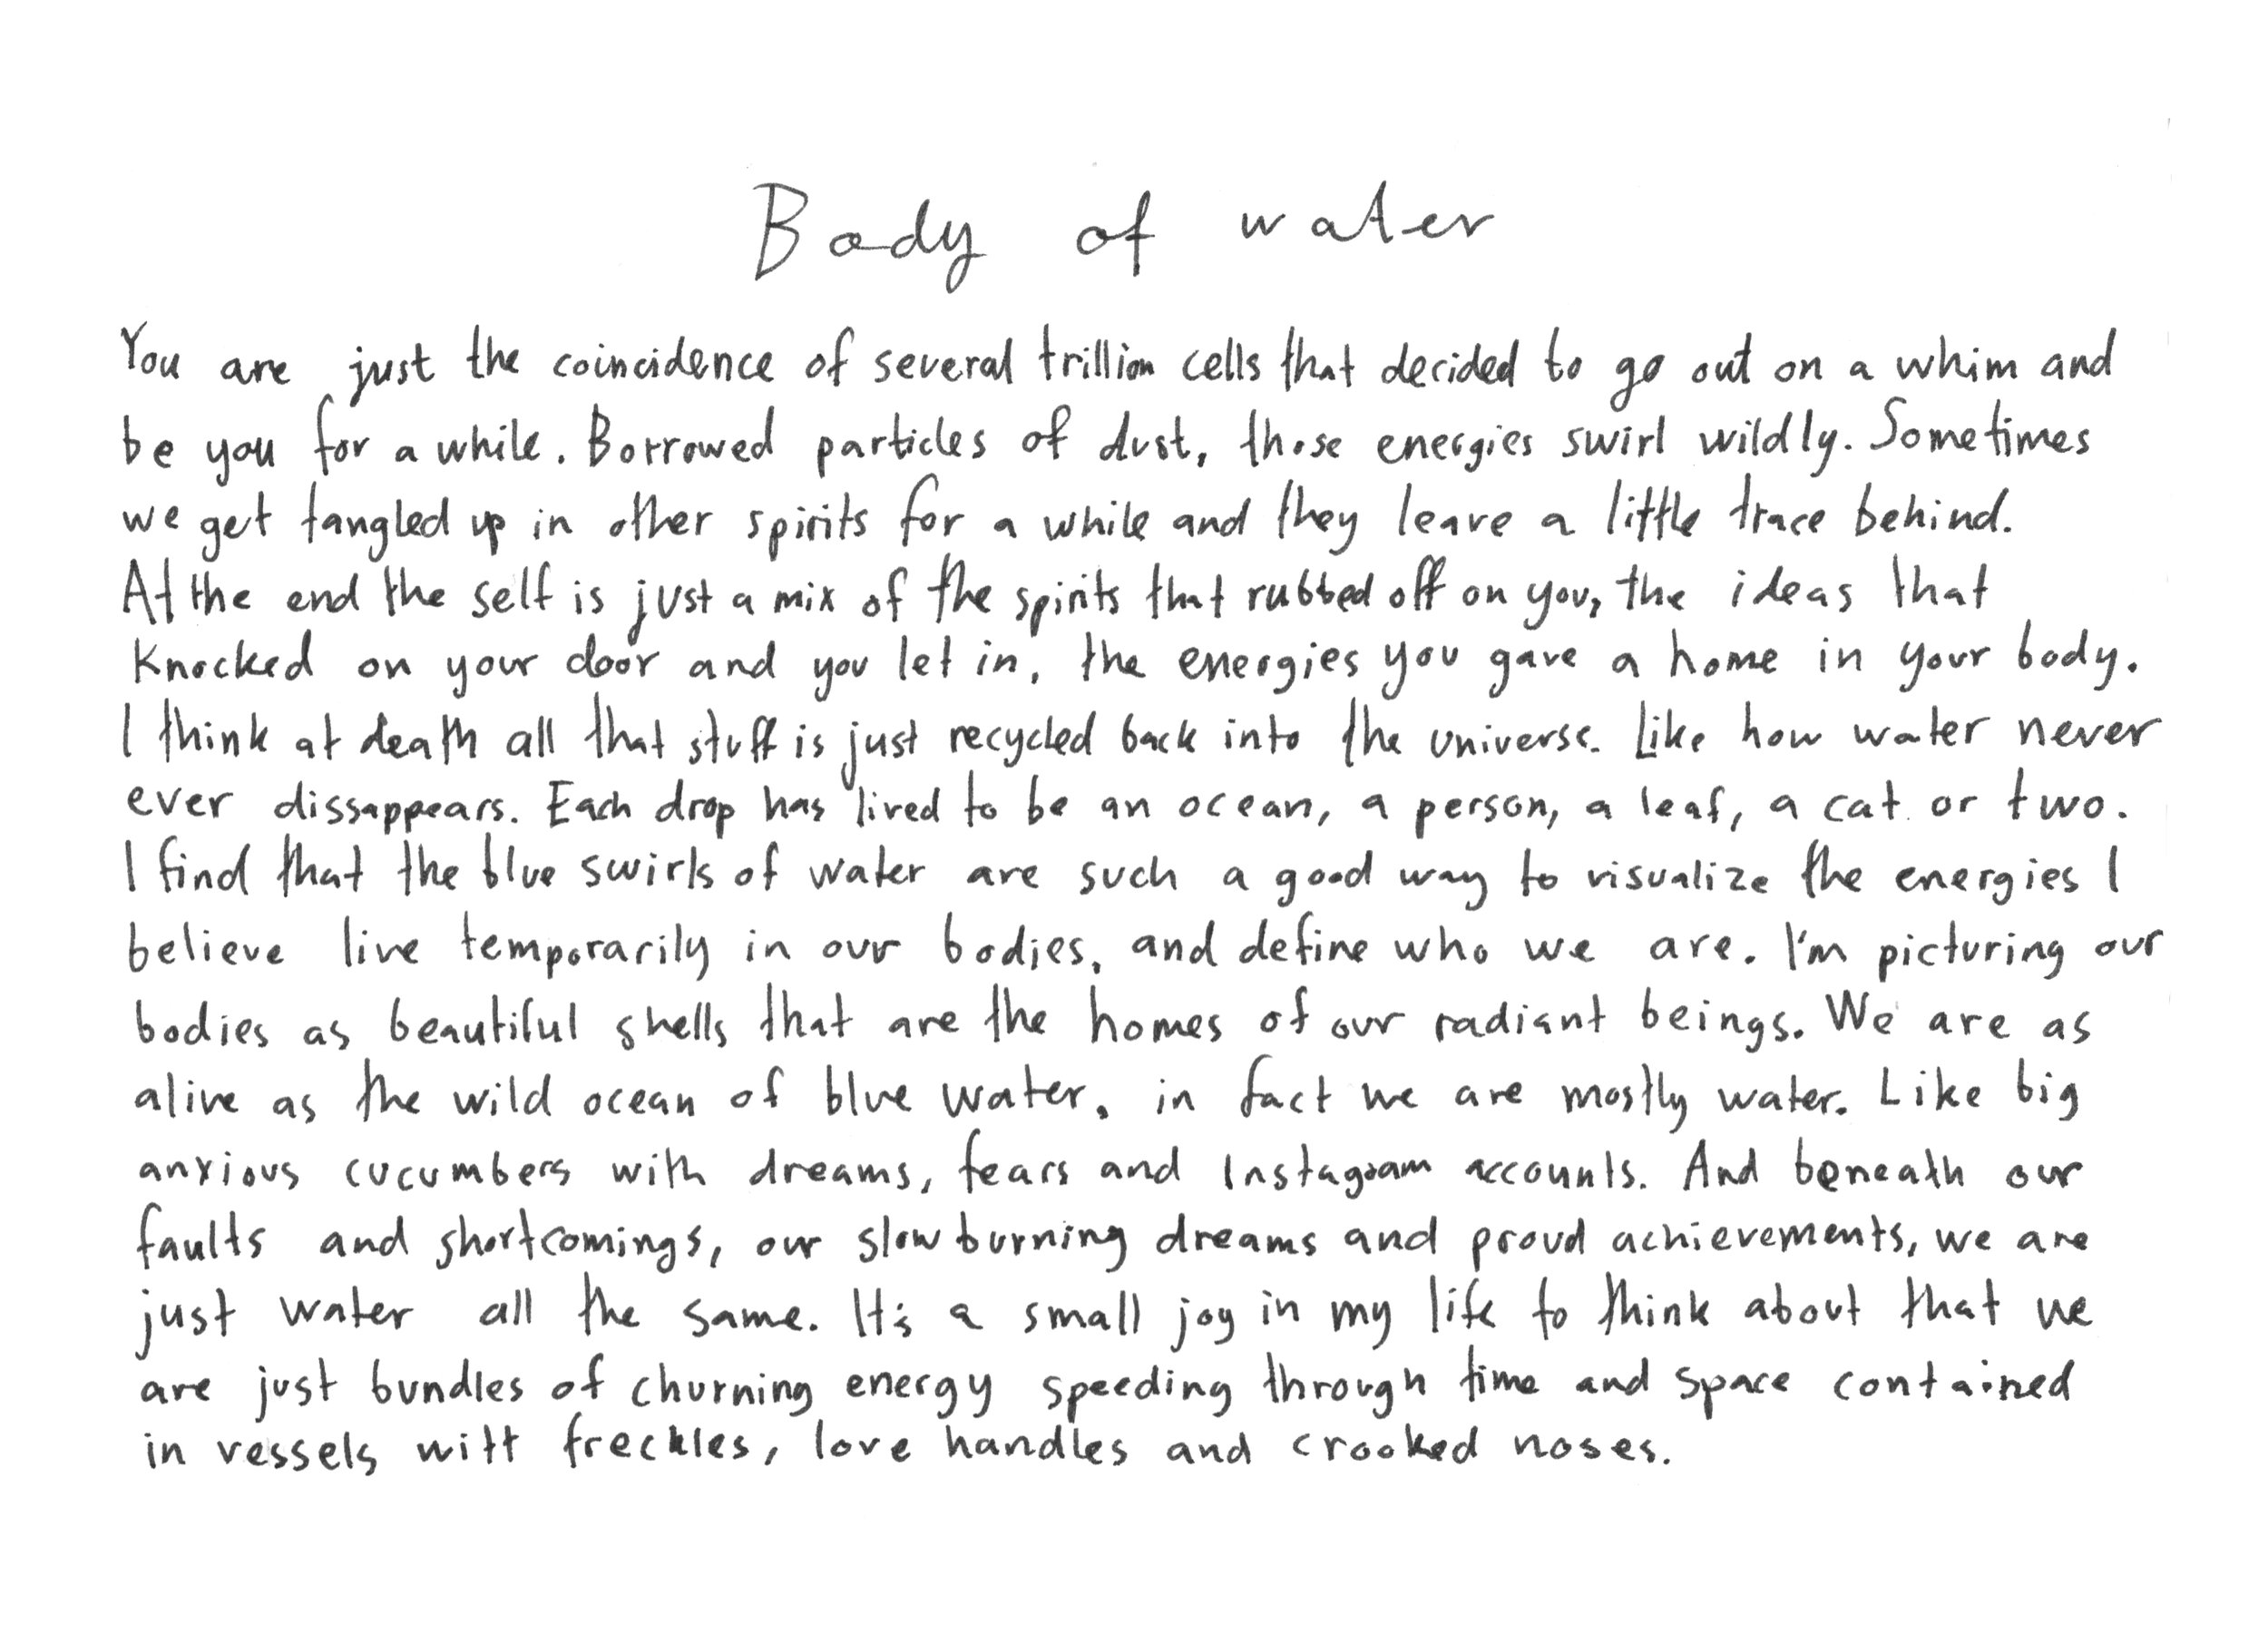 Body of water
You are just the coincidence of several trillion cells that decided to go out on a whim and
be you for a while. Borrowed particles of dust, those energies swirl wildly. Sometimes
we get tangled up in other spirits for a while and they leave a little trace behind.
At the end the self is just a mix of the spirits that rubbed off on you, the ideas that
knocked on your door and you let in, the energies you gave a home in your body.
I think at death all that stuff is just recycled back into the universe. Like how water never
ever dissappears. Each drop has lived to be an ocean, a person, a leaf, a cat or two.
I find that the blue swirls of water are such a good way to visualize the energies I
believe live temporarily in our bodies, and define who we are. I'm picturing our
bodies as beautiful shells that are the homes of our radiant beings. We are as
alive as the wild ocean of blue water, in fact we are mostly water. Like big
anxious cucumbers with dreams, fears and Instagram accounts. And beneath our
faults and shortcomings, our slow burning dreams and proud achievements, we are
just water all the same. It's a small joy in my life to think about that we
are just bundles of churning energy speeding through time and space contained
in vessels witt freckles, love handles and crooked noses.